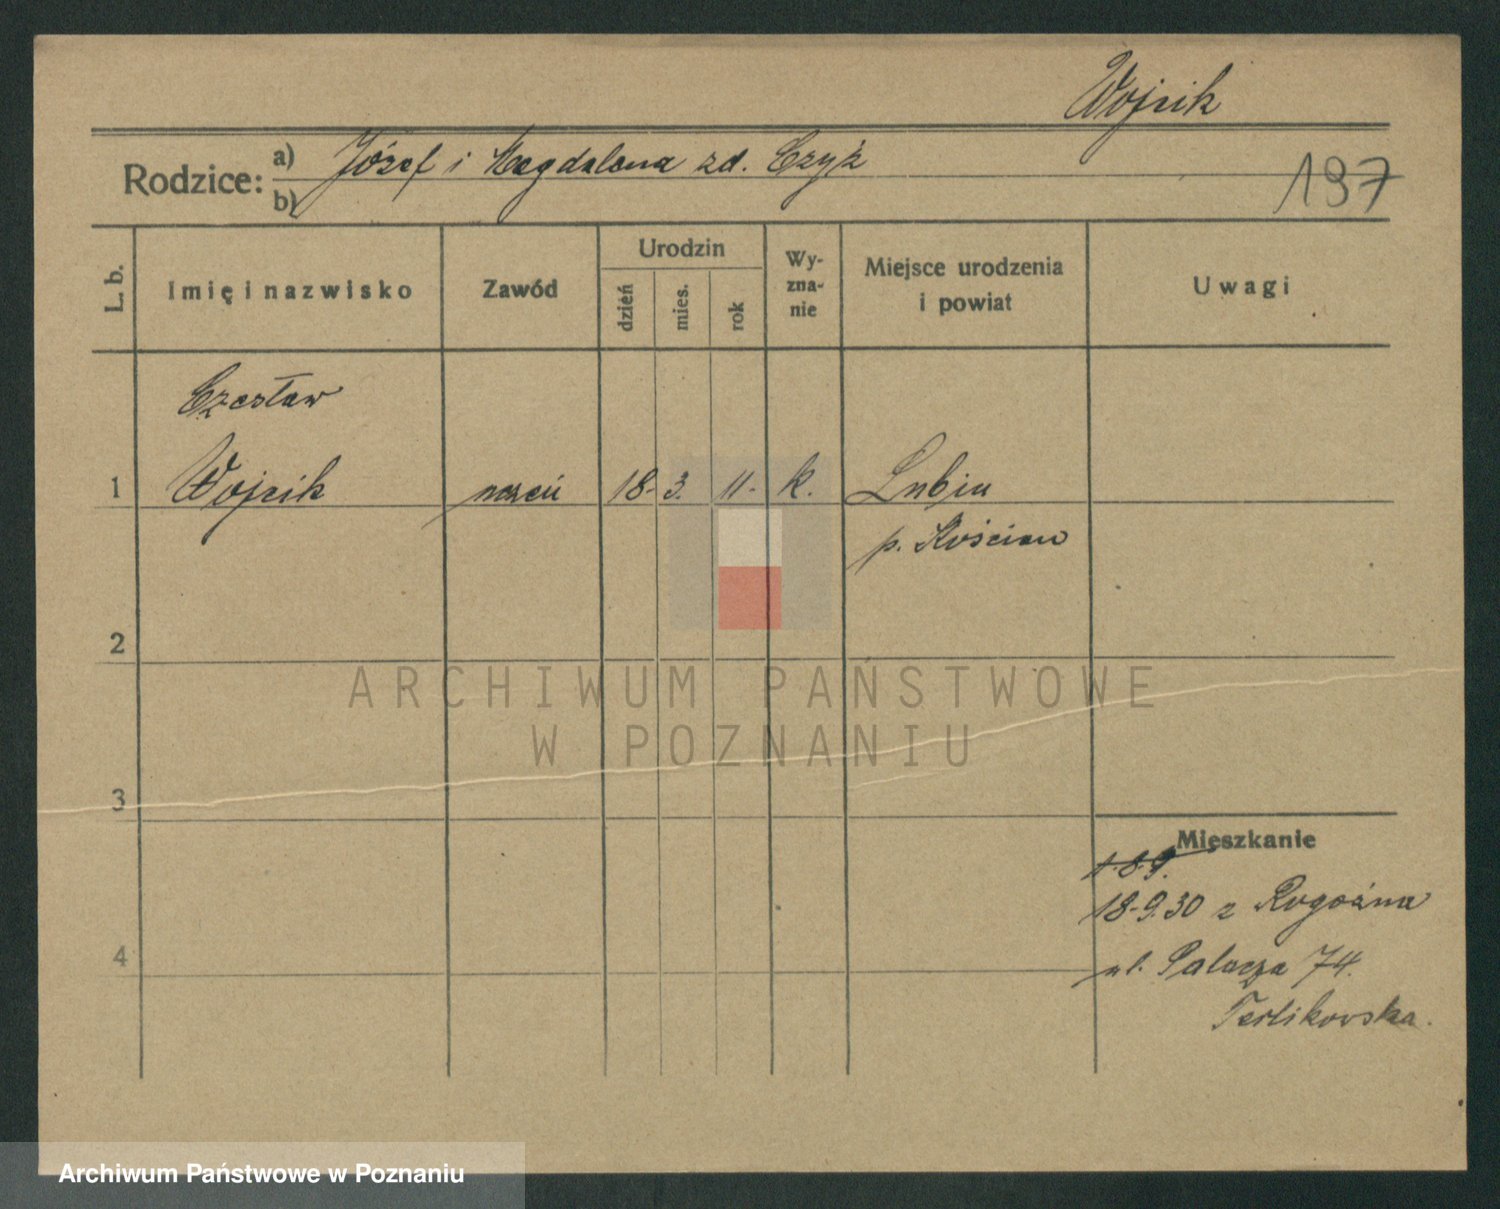 Wojcik
Rodzice: a) Józef i Magdalena zd. Czyż
b)
197
L. b. Imię i nazwisko Zawód Urodzin dzień mies. rok Wyznanie Miejsce urodzenia i powiat Uwagi
Czesław
1 Wojcik uczeń 18- 3. 11- k. Lubiu
p. Kościan
2
3
Mieszkanie
1.8.9.
18-9.30 z Rogoźna
4 ul. Palacza 74.
Terlikovska.
ARCHIWUM PAŃSTWOWE
W POZNANIU
Archiwum Państwowe w Poznaniu